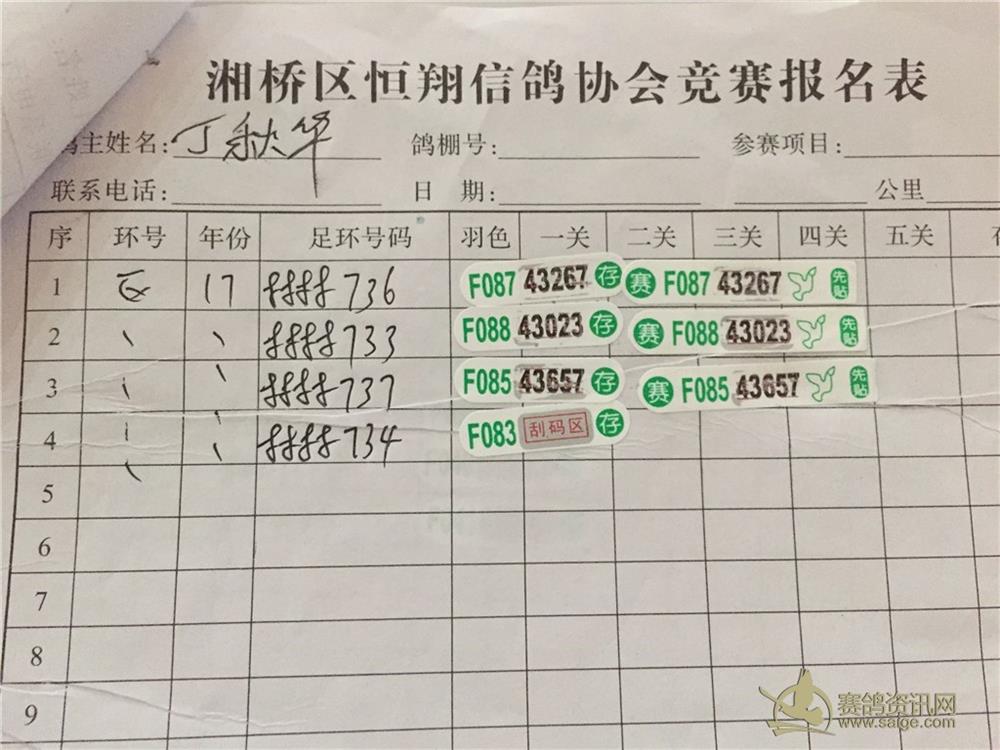 湘桥区恒翔信鸽协会竞赛报名表
鸽主姓名: 丁秋华 鸽棚号: 参赛项目:
联系电话: 日 期: 公里
序 环号 年份 足环号码 羽色 一关 二关 三关 四关 五关
1 17 736 F087 43267 存 赛 F087 43267 先贴
2 733 F088 43023 存 赛 F088 43023 先贴
3 737 F085 43657 存 赛 F085 43657 先贴
4 734 F083 刮码区 存
5
6
7
8
9
赛鸽资讯网
www.saige.com